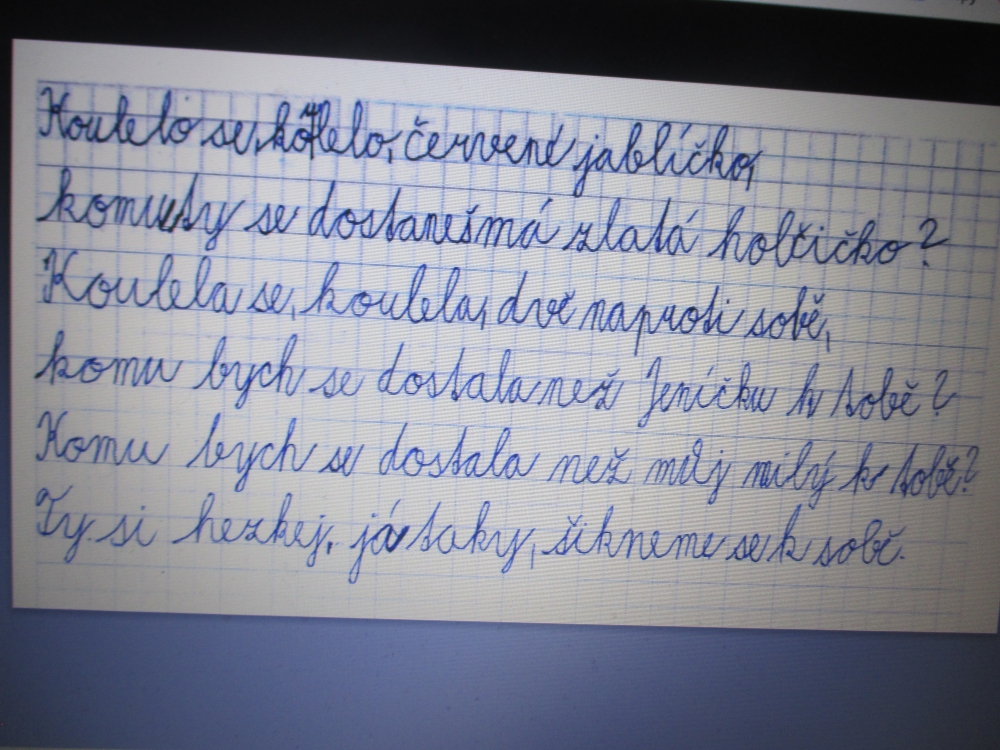 Koulelo se, koulelo, červené jablíčko,
komu ty se dostaneš má zlatá holčičko?
Koulela se, koulela, dvě naproti sobě,
komu bych se dostala než Jeníčku k tobě?
Komu bych se dostala než můj milý k tobě?
Ty si hezkej, já taky, šikneme se k sobě.